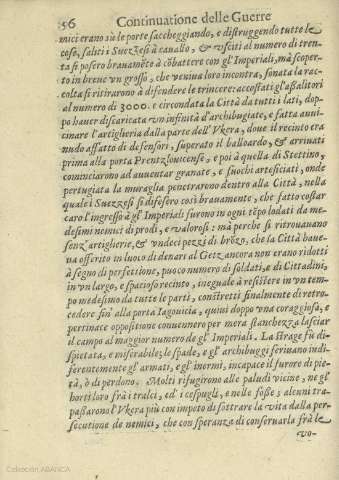 56 Continuatione delle Guerre
mici erano sù le porte saccheggiando, e distruggendo tutte le
cose, saliti i Suezzesi à cauallo, & vsciti al numero di tren-
ta si posero brauamēte à cōbattere con gl'Imperiali, mà scoper-
to in breue vn grosso, che veniua loro incontra, sonata la rac-
colta si ritirarono à defendere le trincere: accostati gl'assalitori
al numero di 3000. e circondata la Città da tutti i lati, dop-
po hauer discaricata vn infinità d'archibugiate, e fatta auui-
cinare l'artiglieria dalla parte dell'Vkera, doue il recinto era
nudo affatto di defensori, superato il balloardo, & arriuati
prima alla porta Prentzlouicense, e poi à quella di Stettino,
cominciarono ad auuentar granate, e fuochi arteficiati, onde
pertugiata la muraglia penetrarono dentro alla Città, nella
quale i Suezzesi si difesero così brauamente, che fatto costar
caro l'ingresso à gl'Imperiali furono in ogni tēpo lodati da me-
desimi nemici di prodi, e valorosi: mà perche si ritrouauano
senz'artiglierie, & vndeci pezzi di brōzo, che la Città haue-
ua offerito in luoco di denari al Getz ancora non erano ridotti
à segno di perfettione, puoco numero di soldati, e di Cittadini,
in vn largo, e spacioso recinto, ineguale à resistere in vn tem-
po medesimo da tutte le parti, constretti finalmente di retro-
cedere sin' alla porta Iagouicia, quiui doppo vna coraggiosa, e
pertinace oppositione conuennero per mera stanchezza lasciar
il campo al maggior numero de gl'Imperiali. La strage fù di-
spietata, e miserabile; le spade, e gl'archibuggi feriuano indif-
ferentemente gl'armati, e gl'inermi, incapace il furore di pie-
tà, ò di perdono. Molti rifugirono alle paludi vicine, ne gl'
horti loro frà i tralci, ed i cespugli, e nelle fosse; alcuni tra-
passarono l'Vkera più con impeto di sottrare la vita dalla per-
secutione de nemici, che con speranza di conseruarla frà le
vo-
Colección ABANCA